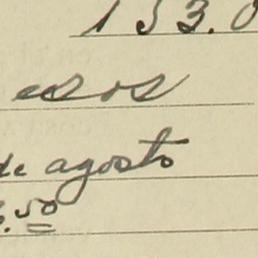 153.0
esos
de agosto
.50